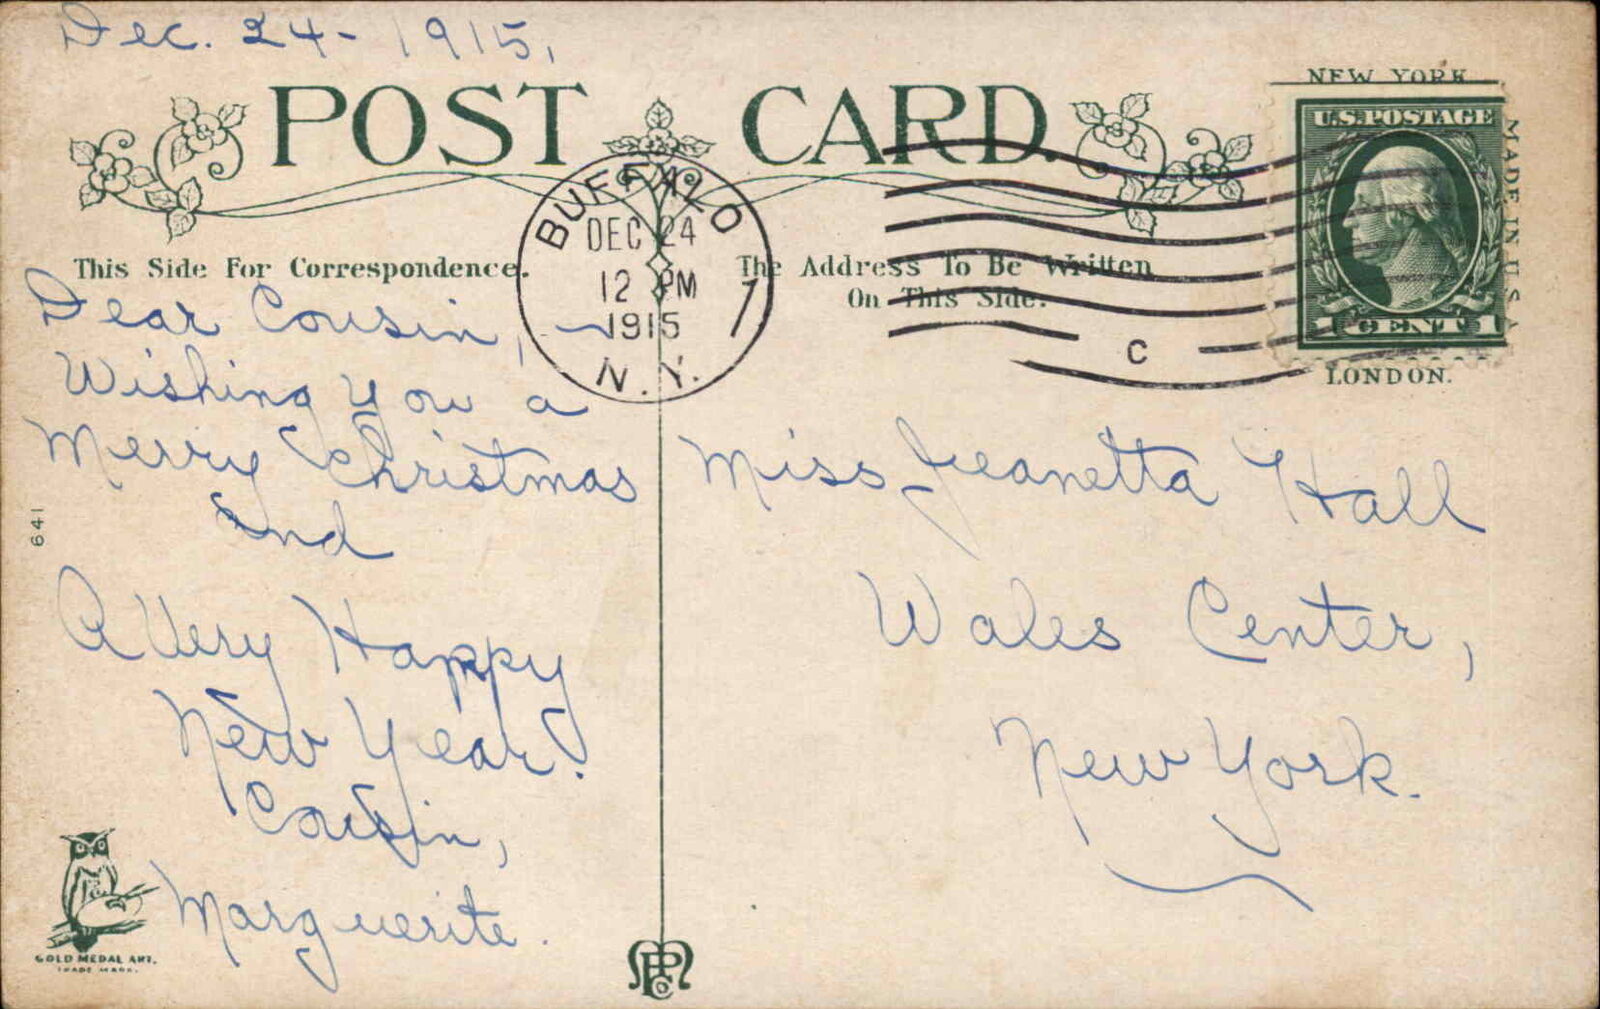 Dec. 24 - 1915,
POST CARD.
NEW YORK
U.S. POSTAGE
1 CENT 1
MADE IN U.S.A.
LONDON.
BUFFALO
DEC 24
12 PM
1915
N.Y.
1
C
This Side For Correspondence.
The Address To Be Written
On This Side.
Dear Cousin,
Wishing you a
Merry Christmas
and
A Very Happy
New Year.
Cousin,
Marguerite.
Miss Jeanetta Hall
Wales Center,
New York.
641
GOLD MEDAL ART.
TRADE MARK.